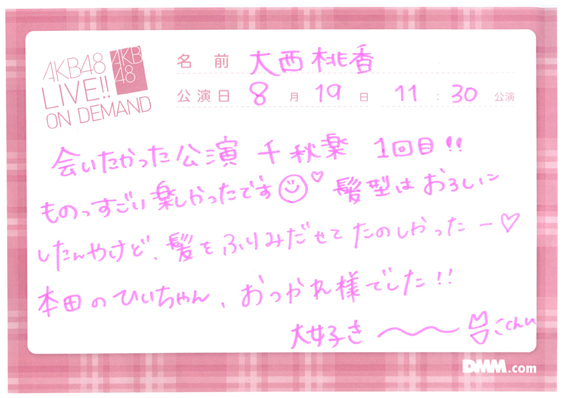 AKB48
LIVE!!
ON DEMAND
AKB
48
名 前 大西桃香
公演日 8 月 19 日 11 : 30 公演
会いたかった公演 千秋楽 1回目!!
ものっすごい楽しかったです♡ 髪型はおろしに
したんやけど、髪をふりみだせてたのしかったー♡
本田のひぃちゃん、おつかれ様でした!!
大好き〜〜 chu
DMM.com